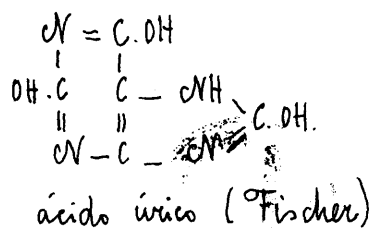 N = C.OH
OH.C C – NH
C.OH.
N – C – N
ácido úrico (Fischer)